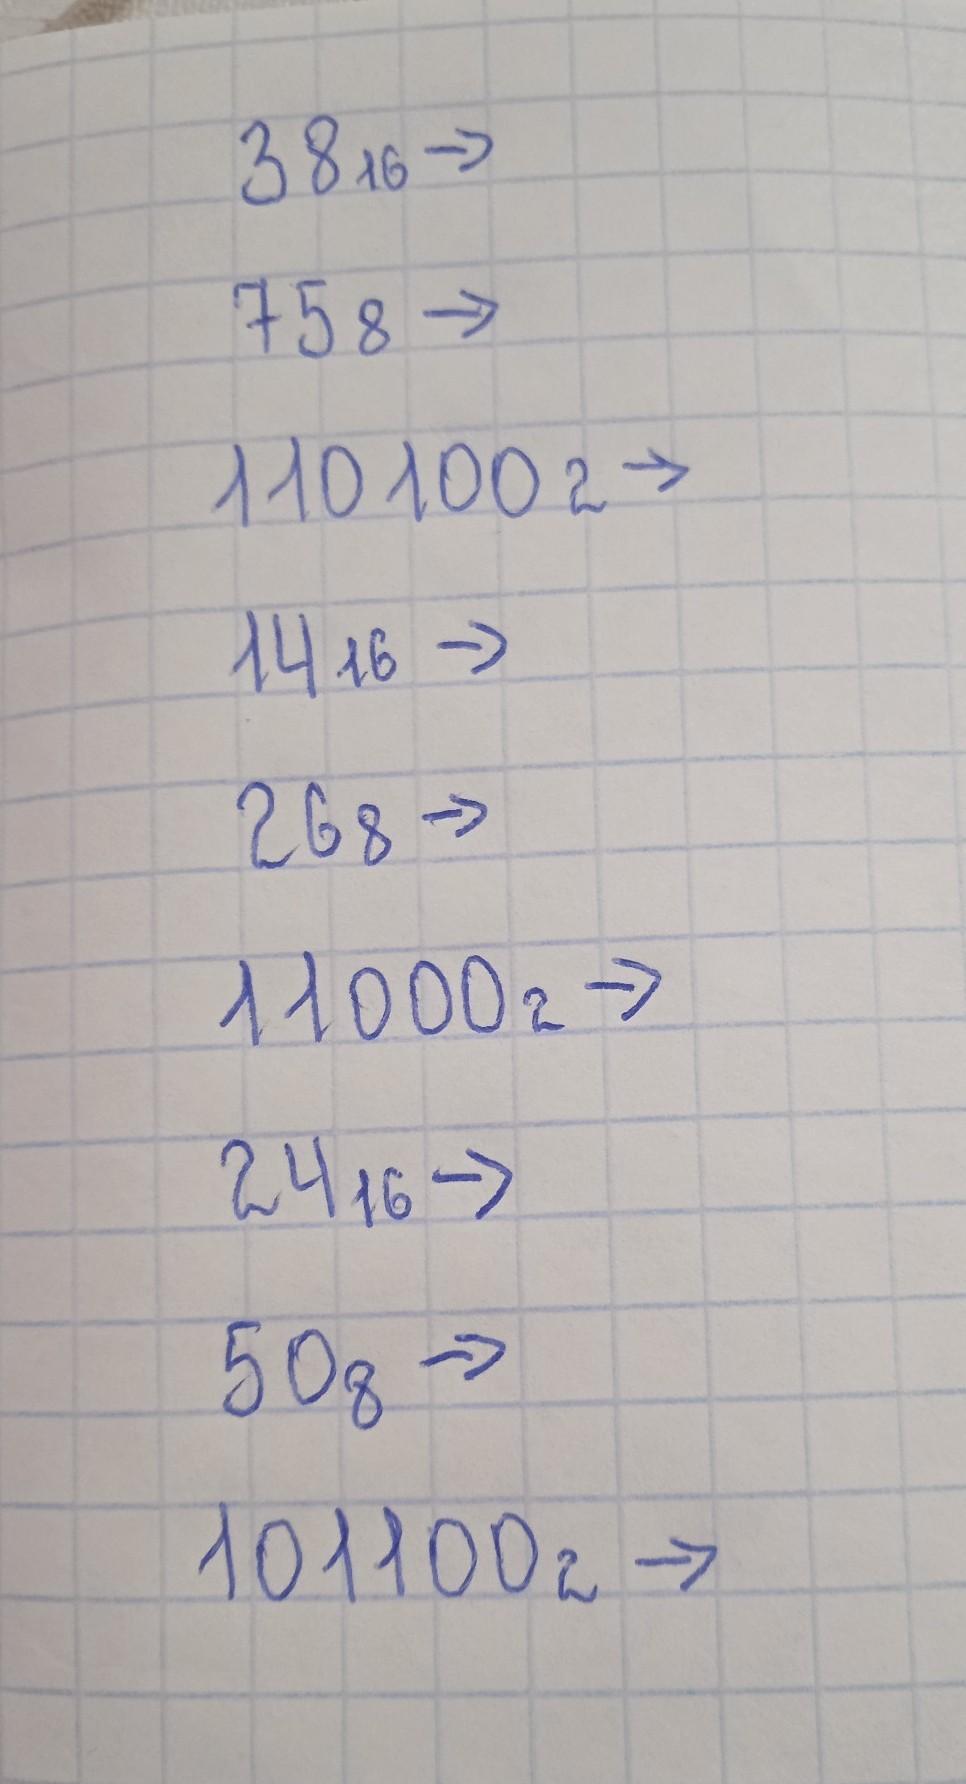 38₁₆ →
75₈ →
110100₂ →
14₁₆ →
26₈ →
11000₂ →
24₁₆ →
50₈ →
101100₂ →